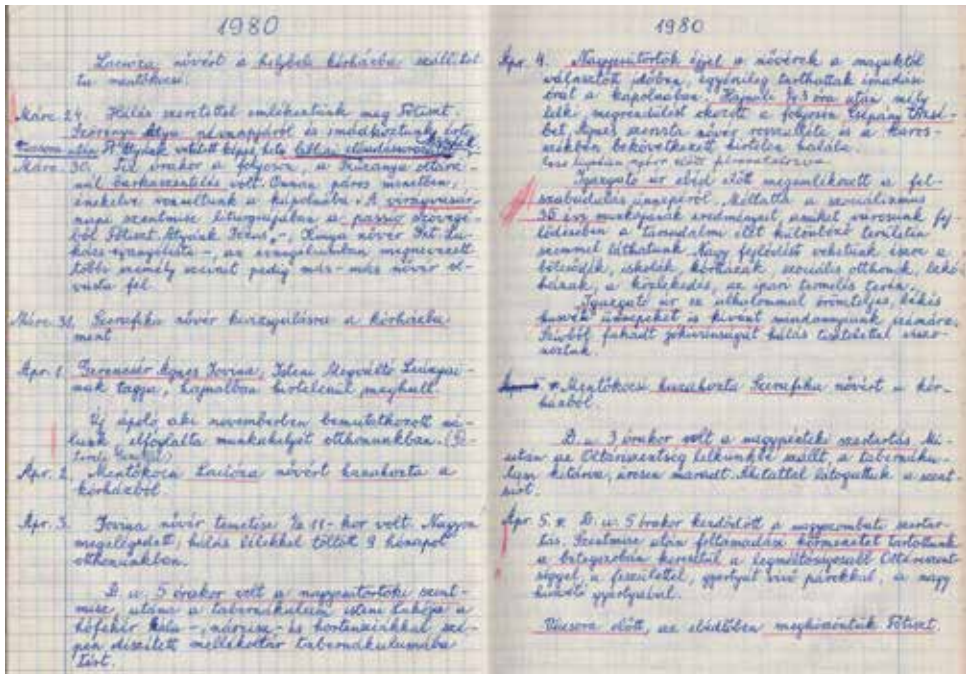 1980
nővért a helybeli kórházba szállítot
ta mentőkocsi.
Márc. 24. Hálás szeretettel emlékeztünk meg Főtiszt.
Atya névnapjáról és imádkoztunk érte.
A vetített képes
Márc. 30. órakor a folyosón, a Szűzanya oltárá-
nál barkaszentelés volt. Onnan páros menetben,
énekelve vonultunk a kápolnába. A virágvasár-
napi szentmise liturgiájában a passió
ből Főtiszt. Atyánk Jézus-, Kinga nővér Szt. Lu-
kács evangélista-, az evangéliumban megnevezett
több személy szavait pedig más-más nővér ol-
vasta fel.
Márc. 31. Szerafika nővér kivizsgálásra a kórházba
ment
Ápr. 1. Gerencsér Ágnes Jovina, Isteni Megváltó Leányai-
nak tagja, hajnalban hirtelenül meghalt.
Új ápoló, aki novemberben bemutatkozott ná-
lunk, elfoglalta munkahelyét otthonunkban.
Ápr. 2. Mentőkocsi nővért hazahozta a
kórházból.
Ápr. 3. Jovina nővér temetése 1/2 11-kor volt. Nagyon
megelégedett, hálás lélekkel töltött 9 hónapot
otthonunkban.
D. u. 5 órakor volt a nagycsütörtöki szent-
mise, utána a tabernákulum isteni lakója a
hófehér kála-, nárcisz- és hortenziákkal szé-
pen díszített mellékoltár tabernákulumába
tért.
1980
Ápr. 4. Nagycsütörtök éjjel a nővérek a maguktól
választott időben, egyénileg tarthattak imádási
órát a kápolnában. Hajnali 1/2 3 óra után mély
lelki megrendülést okozott a folyosón Csepány Erzsé-
bet, Ágnes szerzeta nővér rosszulléte és a
bekövetkezett hirtelen halála.
Igazgató úr ebéd előtt megemlékezett a fel-
szabadulás ünnepéről. Méltatta a szocializmus
35 éves munkájának eredményeit, amiket városunk fej-
lődésében a társadalmi élet különböző területein
szemmel láthatunk. Nagy fejlődést vehetünk észre a
bölcsődék, iskolák, kórházak, szociális otthonok, lakó-
házak, a közlekedés, az ipari termelés terén.
Igazgató úr ez alkalommal örömteljes, békés
húsvéti ünnepeket is kívánt mindannyiunk számára.
Szívből fakadt jókívánságát hálás tisztelettel viszo-
noztuk.
Mentőkocsi hazahozta Szerafika nővért a kór-
házból.
D. u. 3 órakor volt a nagypénteki szertartás. Mi-
után az Oltáriszentség lelkünkbe szállt, a tabernáku-
lum kitárva, üresen maradt. Áhítattal látogattuk a szent-
sírt.
Ápr. 5. D. u. 5 órakor kezdődött a nagyszombati szertar-
tás. Szentmise után feltámadási körmenetet tartottunk
a betegszobán keresztül a legméltóságosabb Oltáriszent-
séggel, a feszülettel, gyertyát vivő párokkal, a nagy
húsvéti gyertyával.
Vacsora előtt, az ebédlőben megköszöntük Főtiszt.